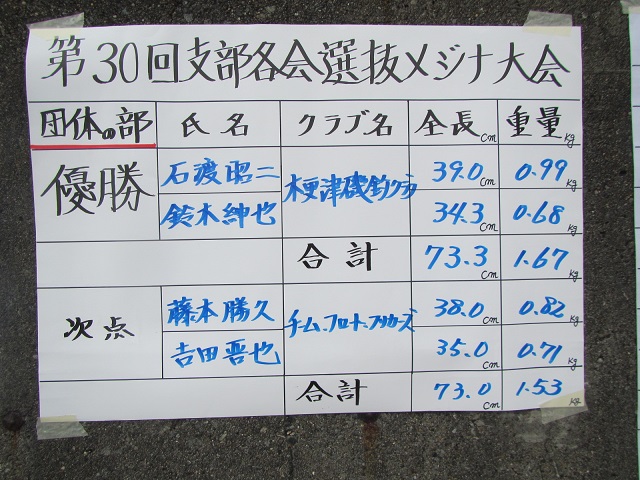 第30回支部各会選抜メジナ大会
団体の部 氏名 クラブ名 全長cm 重量kg
優勝 石渡昭二 木更津磯釣クラブ 39.0cm 0.99kg
鈴木紳也 34.3cm 0.68kg
合計 73.3cm 1.67kg
次点 藤本勝久 チーム、フロート、フリカーズ 38.0cm 0.82kg
吉田晋也 35.0cm 0.71kg
合計 73.0cm 1.53kg